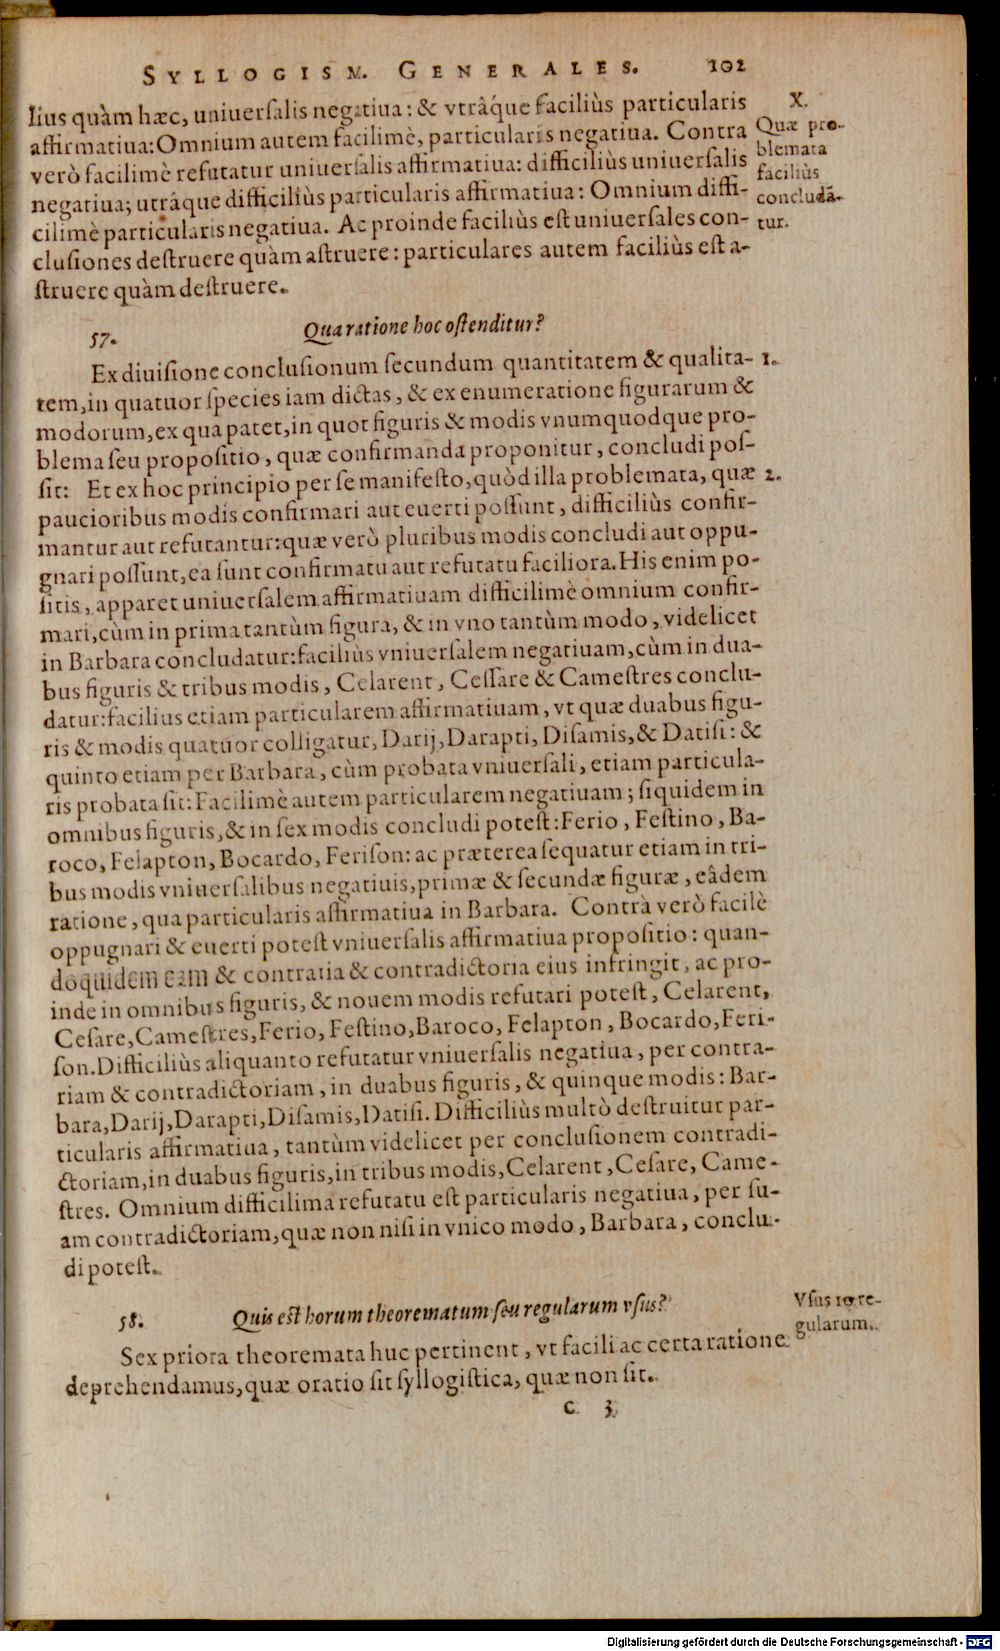 SYLLOGISM. GENERALES. 102
lius quàm hæc, uniuerſalis negatiua: & vtrâque faciliùs particularis
affirmatiua: Omnium autem facilimè, particularis negatiua. Contra
verò facilimè refutatur uniuerſalis affirmatiua: difficiliùs uniuerſalis
negatiua; utrâque difficiliùs particularis affirmatiua: Omnium diffi-
cilimè particularis negatiua. Ac proinde faciliùs eſt uniuerſales con-
cluſiones deſtruere quàm aſtruere: particulares autem faciliùs eſt a-
ſtruere quàm deſtruere.
X.
Quæ pro-
blemata
faciliùs
concludā-
tur.
57. Qua ratione hoc oſtenditur?
Ex diuiſione concluſionum ſecundum quantitatem & qualita- 1.
tem, in quatuor ſpecies iam dictas, & ex enumeratione figurarum &
modorum, ex qua patet, in quot figuris & modis vnumquodque pro-
blema ſeu propoſitio, quæ confirmanda proponitur, concludi poſ-
ſit: Et ex hoc principio per ſe manifeſto, quòd illa problemata, quæ 2.
paucioribus modis confirmari aut euerti poſſunt, difficiliùs confir-
mantur aut refutantur: quæ verò pluribus modis concludi aut oppu-
gnari poſſunt, ea ſunt confirmatu aut refutatu faciliora. His enim po-
ſitis, apparet uniuerſalem affirmatiuam difficilimè omnium confir-
mari, cùm in prima tantùm figura, & in vno tantùm modo, videlicet
in Barbara concludatur: faciliùs vniuerſalem negatiuam, cùm in dua-
bus figuris & tribus modis, Celarent, Ceſſare & Cameſtres conclu-
datur: facilius etiam particularem affirmatiuam, vt quæ duabus figu-
ris & modis quatuor colligatur, Darij, Darapti, Diſamis, & Datiſi: &
quinto etiam per Barbara, cùm probata vniuerſali, etiam particula-
ris probata ſit: Facilimè autem particularem negatiuam; ſiquidem in
omnibus figuris, & in ſex modis concludi poteſt: Ferio, Feſtino, Ba-
roco, Felapton, Bocardo, Feriſon: ac præterea ſequatur etiam in tri-
bus modis vniuerſalibus negatiuis, primæ & ſecundæ figuræ, eâdem
ratione, qua particularis affirmatiua in Barbara. Contrà verò facilè
oppugnari & euerti poteſt vniuerſalis affirmatiua propoſitio: quan-
doquidem eam & contraria & contradictoria eius infringit, ac pro-
inde in omnibus figuris, & nouem modis refutari poteſt, Celarent,
Ceſare, Cameſtres, Ferio, Feſtino, Baroco, Felapton, Bocardo, Feri-
ſon. Difficiliùs aliquanto refutatur vniuerſalis negatiua, per contra-
riam & contradictoriam, in duabus figuris, & quinque modis: Bar-
bara, Darij, Darapti, Diſamis, Datiſi. Difficiliùs multò deſtruitur par-
ticularis affirmatiua, tantùm videlicet per concluſionem contradi-
ctoriam, in duabus figuris, in tribus modis, Celarent, Ceſare, Came-
ſtres. Omnium difficilima refutatu eſt particularis negatiua, per ſu-
am contradictoriam, quæ non niſi in vnico modo, Barbara, conclu-
di poteſt.
58. Quis eſt horum theorematum ſeu regularum vſus?
Vſus 10 re-
gularum.
Sex priora theoremata huc pertinent, vt facili ac certa ratione
deprehendamus, quæ oratio ſit ſyllogiſtica, quæ non ſit.
C 3
Digitalisierung gefördert durch die Deutsche Forschungsgemeinschaft - DFG